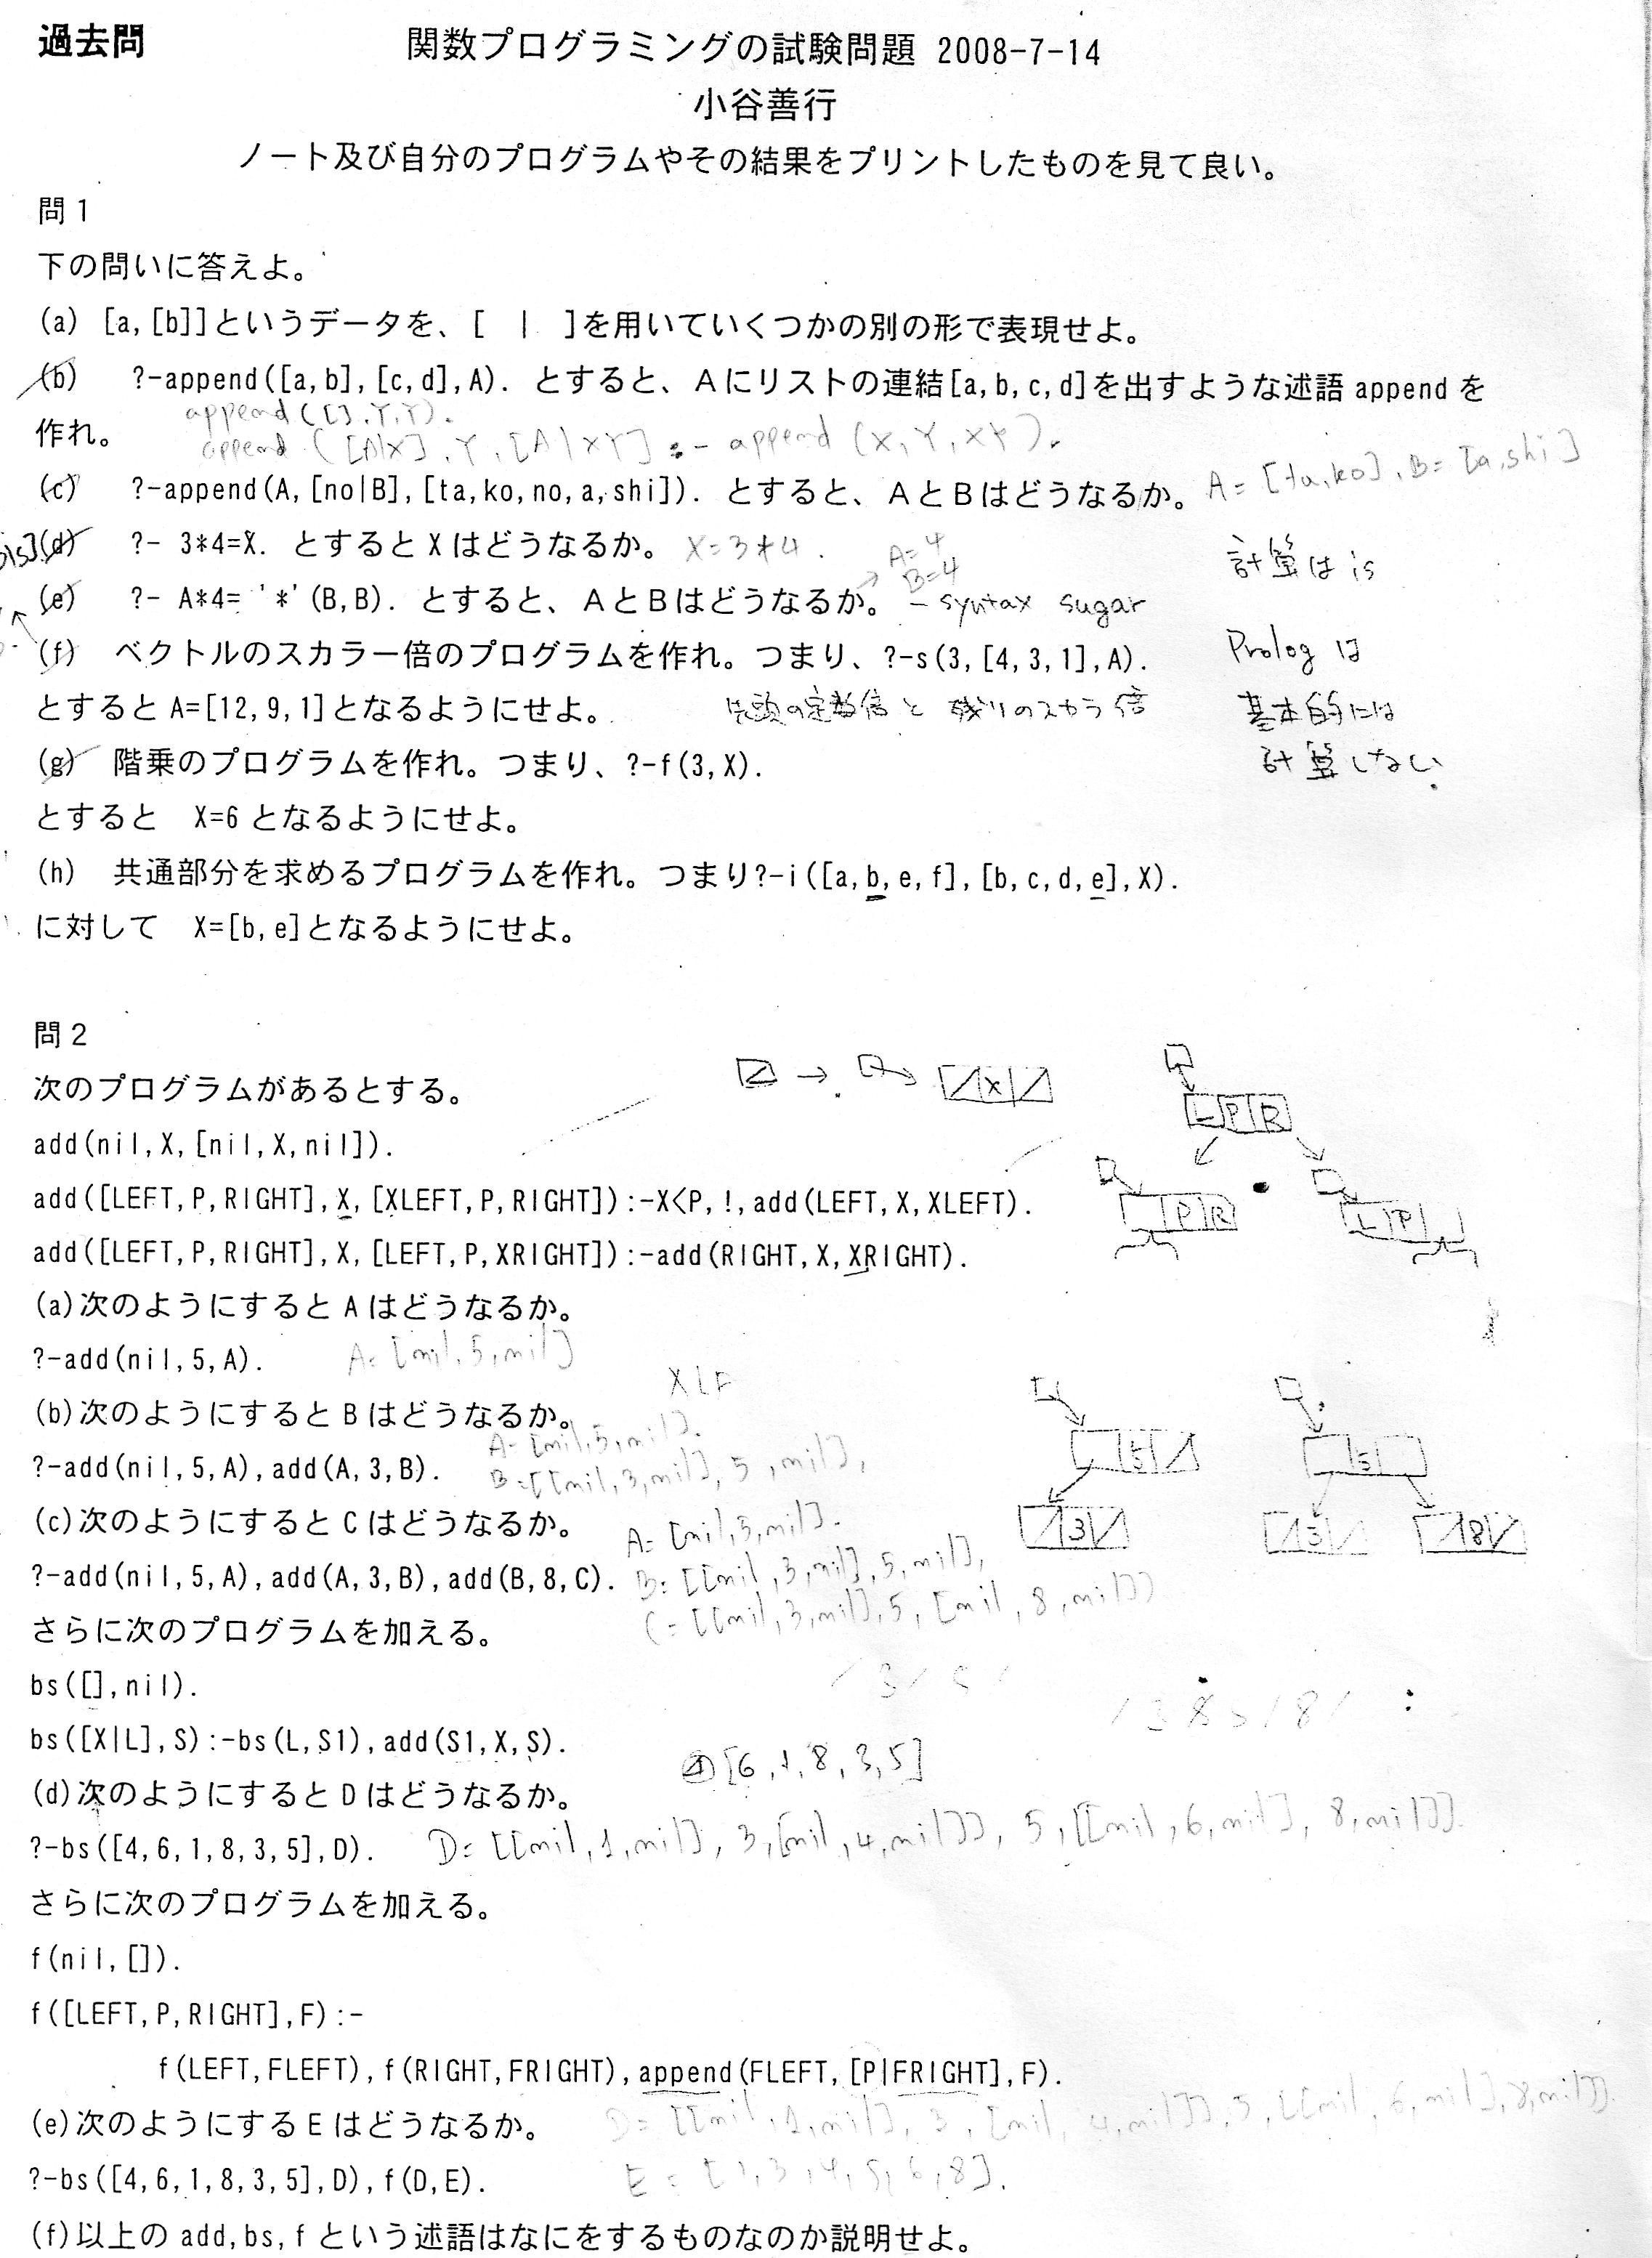 過去問
関数プログラミングの試験問題 2008-7-14
小谷善行
ノート及び自分のプログラムやその結果をプリントしたものを見て良い。
問1
下の問いに答えよ。
(a) [a,[b]]というデータを、[ | ]を用いていくつかの別の形で表現せよ。
(b) ?-append([a,b],[c,d],A). とすると、Aにリストの連結[a,b,c,d]を出すような述語 append を
append([],Y,Y).
作れ。
append([A|X],Y,[A|XY] :- append(X,Y,XY).
(c) ?-append(A,[no|B],[ta,ko,no,a,shi]). とすると、AとBはどうなるか。 A=[ta,ko],B=[a,shi]
(d) ?- 3*4=X. とするとXはどうなるか。 X=3*4.
計算は is
A=4
B=4
(e) ?- A*4= '*'(B,B). とすると、AとBはどうなるか。 - syntax sugar
(f) ベクトルのスカラー倍のプログラムを作れ。つまり、?-s(3,[4,3,1],A).
Prologは
とすると A=[12,9,1]となるようにせよ。 先頭の定数倍と残りのスカラ倍
基本的には
(g) 階乗のプログラムを作れ。つまり、?-f(3,X).
計算しない.
とすると X=6 となるようにせよ。
(h) 共通部分を求めるプログラムを作れ。つまり?-i([a,b,e,f],[b,c,d,e],X).
に対して X=[b,e]となるようにせよ。
問2
次のプログラムがあるとする。
X
L P R
P R
L P
add(nil,X,[nil,X,nil]).
add([LEFT,P,RIGHT],X,[XLEFT,P,RIGHT]):-X<P,!,add(LEFT,X,XLEFT).
add([LEFT,P,RIGHT],X,[LEFT,P,XRIGHT]):-add(RIGHT,X,XRIGHT).
(a)次のようにすると A はどうなるか。
?-add(nil,5,A). A=[nil,5,nil]
(b)次のようにすると B はどうなるか。
A=[nil,5,nil].
?-add(nil,5,A),add(A,3,B). B=[[nil,3,nil],5,nil],
5
5
3
3
8
(c)次のようにすると C はどうなるか。 A=[nil,5,nil].
?-add(nil,5,A),add(A,3,B),add(B,8,C). B=[[nil,3,nil],5,nil],
C=[[nil,3,nil],5,[nil,8,nil]]
さらに次のプログラムを加える。
bs([],nil).
bs([X|L],S):-bs(L,S1),add(S1,X,S).
④[6,1,8,3,5]
(d)次のようにすると D はどうなるか。
?-bs([4,6,1,8,3,5],D). D=[[nil,1,nil],3,[nil,4,nil]],5,[[nil,6,nil],8,nil]].
さらに次のプログラムを加える。
f(nil,[]).
f([LEFT,P,RIGHT],F):-
f(LEFT,FLEFT),f(RIGHT,FRIGHT),append(FLEFT,[P|FRIGHT],F).
(e)次のようにする E はどうなるか。 D=[[nil,1,nil],3,[nil,4,nil]],5,[[nil,6,nil],8,nil]].
?-bs([4,6,1,8,3,5],D),f(D,E). E=[1,3,4,5,6,8].
(f)以上の add,bs,f という述語はなにをするものなのか説明せよ。